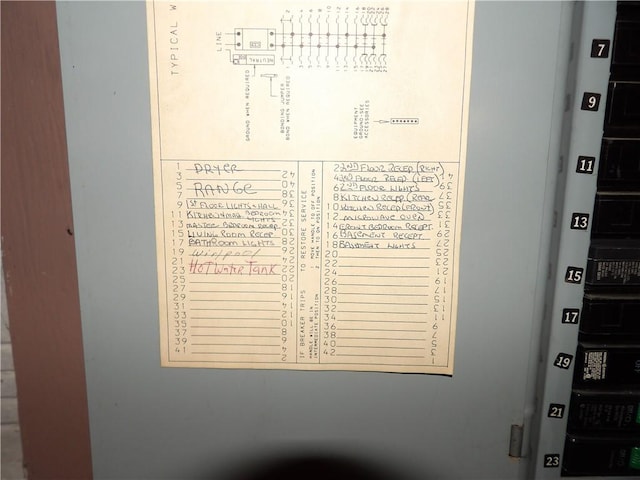 TYPICAL W
LINE
NEUTRAL
GROUND WHEN REQUIRED
BONDING JUMPER
BOND WHEN REQUIRED
EQUIPMENT
GROUND-SEE
ACCESSORIES
1 DRYER
3
5 RANGE
7
9 1ST FLOOR LIGHTS & HALL
11 KITCHEN MAS BEDROOM LIGHTS
13 MASTER BEDROOM RECEP
15 LIVING ROOM RECEP
17 BATHROOM LIGHTS
19
21
23 HOT WATER TANK
25
27
29
31
33
35
37
39
41
IF BREAKER TRIPS TO RESTORE SERVICE
HANDLE WILL BE IN
INTERMEDIATE POSITION
1 MOVE HANDLE TO OFF POSITION
2 THEN TO ON POSITION
2 2ND FLOOR RECEP (RIGHT)
4 2ND FLOOR RECEP (LEFT)
6 2ND FLOOR LIGHTS
8 KITCHEN RECEP (REAR
10 KITCHEN RECEP (FRONT)
12 MICROWAVE OVEN
14 FRONT BEDROOM RECEPT
16 BASEMENT RECEPT
18 BASEMENT LIGHTS
20
22
24
26
28
30
32
34
36
38
40
42
7
9
11
13
15
17
19
21
23